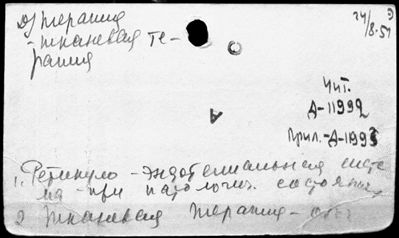 2) терапия
- тканевая те-
рапия
24/8-51
Э
Чит.
Д-11992
А
Прил.-Д-1993
1. Ретикуло-эндотелиальная систе
ма - при патологич. состояниях
2 тканевая терапия -